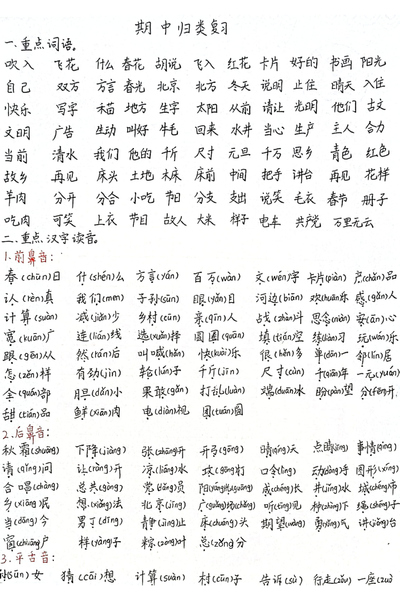 期中归类复习
一.重点词语。
吹入 飞花 什么 春花 胡说 飞入 红花 卡片 好的 书画 阳光
自己 双方 方言 春光 北京 北方 冬天 说明 止住 晴天 入住
快乐 写字 禾苗 地方 生字 太阳 从前 请让 光明 他们 古文
文明 广告 生动 叫好 牛毛 回来 水井 当心 生产 主人 合力
当前 清水 我们 他的 千斤 尺寸 元旦 千万 思乡 青色 红色
故乡 再见 床头 土地 木床 床前 中间 把手 讲台 再见 花样
羊肉 分开 分合 小吃 节日 分支 支出 说笑 毛衣 春节 册子
吃肉 可笑 上衣 节目 故人 大米 样子 电车 共产党 万里无云
二.重点汉字读音。
1.前鼻音:
春(chūn)日 什(shén)么 方言(yán) 百万(wàn) 文(wén)字 卡片(piàn) 产(chǎn)品
认(rèn)真 我们(men) 子孙(sūn) 眼(yǎn)目 河边(biān) 欢(huān)乐 感(gǎn)人
计算(suàn) 减(jiǎn)少 乡村(cūn) 亲(qīn)人 战(zhàn)斗 思念(niàn) 安(ān)心
宽(kuān)广 连(lián)线 选(xuǎn)择 圆圈(quān) 填(tián)空 练(liàn)习 玩(wán)乐
跟(gēn)从 然(rán)后 叫喊(hǎn) 快(kuài)乐 很(hěn)多 单(dān)一 邻(lín)居
怎(zěn)样 有劲(jìn) 轮(lún)子 千斤(jīn) 尺寸(cùn) 千(qiān)年 一元(yuán)
全(quán)部 胆(dǎn)小 果敢(gǎn) 打乱(luàn) 端(duān)水 盼(pàn)望 分(fēn)开
甜(tián)品 鲜(xiān)肉 电(diàn)视 团(tuán)圆
2.后鼻音:
秋霜(shuāng) 下降(jiàng) 张(zhāng)开 开弓(gōng) 晴(qíng)天 点睛(jīng) 事情(qíng)
请(qǐng)问 让(ràng)开 凉(liáng)水 攻(gōng)打 口令(lìng) 动(dòng)手 图形(xíng)
合唱(chàng) 总共(gòng) 党(dǎng)员 阳(yáng)光(guāng) 成(chéng)长 井(jǐng)水 城(chéng)市
乡(xiāng)民 想(xiǎng)法 北京(jīng) 广(guǎng)场 听(tīng)见 种(zhòng)下 绳(shéng)子
当(dāng)今 男丁(dīng) 静(jìng)止 床(chuáng)头 期望(wàng) 勇(yǒng)气 讲(jiǎng)台
窗(chuāng)户 样(yàng)子 粽(zòng)叶 总(zǒng)分
3.平舌音:
孙(sūn)女 猜(cāi)想 计算(suàn) 村(cūn)子 告诉(sù) 行走(zǒu) 一座(zuò)